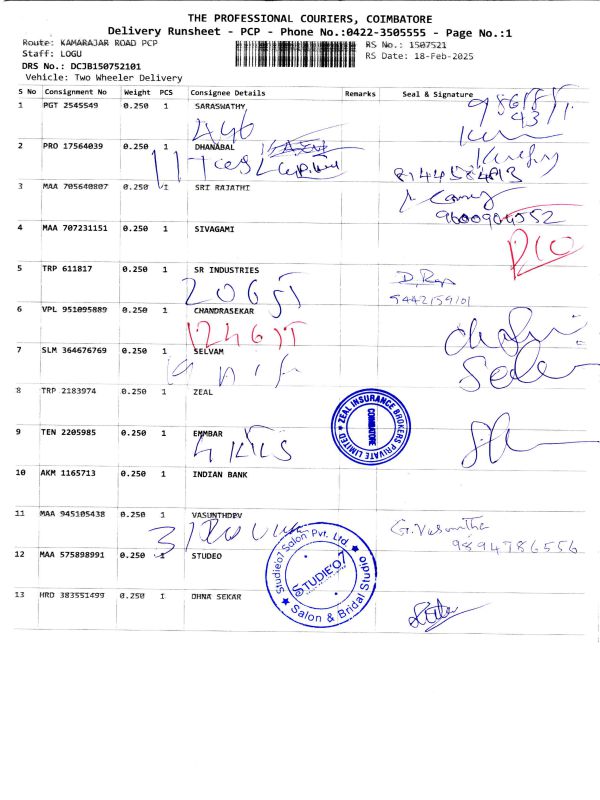 THE PROFESSIONAL COURIERS, COIMBATORE
Delivery Runsheet - PCP - Phone No.:0422-3505555 - Page No.:1
Route: KAMARAJAR ROAD PCP
RS No.: 1507521
Staff: LOGU
RS Date: 18-Feb-2025
DRS No.: DCJB150752101
Vehicle: Two Wheeler Delivery
S No Consignment No Weight PCS Consignee Details Remarks Seal & Signature
1 PGT 2545549 0.250 1 SARASWATHY
2 PRO 17564039 0.250 1 DHANABAL
8144584813
3 MAA 705640807 0.250 1 SRI RAJATHI
9600904552
4 MAA 707231151 0.250 1 SIVAGAMI
5 TRP 611817 0.250 1 SR INDUSTRIES
9442159101
6 VPL 951095889 0.250 1 CHANDRASEKAR
7 SLM 364676769 0.250 1 SELVAM
8 TRP 2183974 0.250 1 ZEAL
ZEAL INSURANCE BROKERS PRIVATE LIMITED
COIMBATORE
9 TEN 2205985 0.250 1 EMMBAR
10 AKM 1165713 0.250 1 INDIAN BANK
11 MAA 945105438 0.250 1 VASUNTHDEV
G. Vasuntha
9894786556
12 MAA 575898991 0.250 1 STUDEO
Studieo7 Salon Pvt. Ltd
STUDIEO7
Salon & Bridal Studio
13 HRD 383551499 0.250 1 DHNA SEKAR